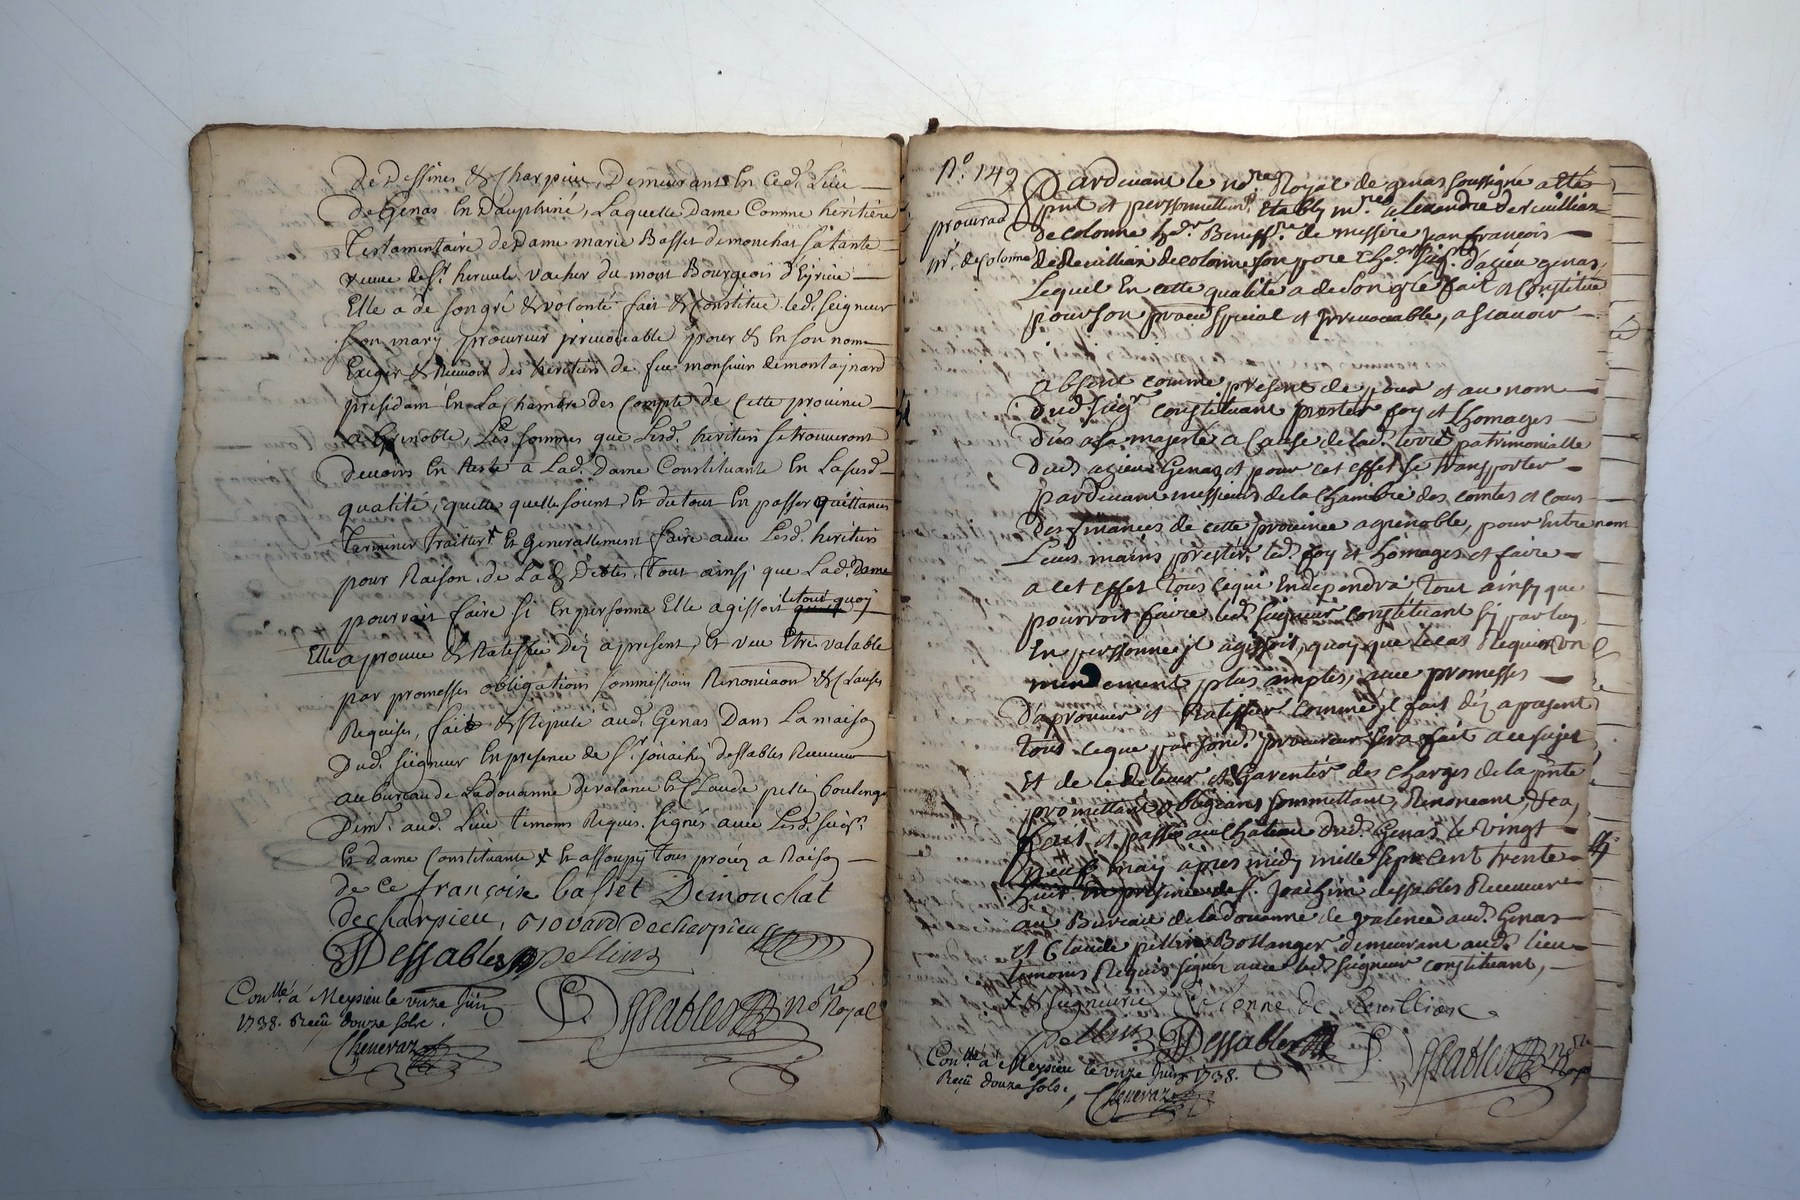 De Dessines & Charpieu, Demeurant En Ced. Lieu
De Genas En Dauphiné, Laquelle Dame Comme héritière
Testamentaire de Dame marie Basset demonchat sa tante
veuve de Sr. hercule vacher du mois Bourgeois d'Eyrieu
Elle a de son gré & volonté fait & Constitué led. seigneur
son mary procureur irrevocable pour & En son nom
Exiger & Recevoir des héritiers de feu monsieur demontaynard
president En La Chambre des Compte de Cette province
a Grenoble, Les sommes que Lesd. heritiers se trouveront
Devoirs En Reste a Lad. Dame Constituante En La susd.
qualité, quelle quelle soient, Et du tout En passer quittances
Terminer Traitter Et Generallement faire avec Lesd. heritiers
pour Raison de Lad. Dettes, Tout ainsi que Lad. Dame
pourroit faire si En personne Elle agissoit le tout quoy
Elle aprouve & Ratiffie déj apresent, Et veu Etre valable
par promesses obligations soumissions Renonciaon & Clauses
Requises, fait & stipulé aud. Genas Dans La maison
Dud. seigneur En presence de Sr. joachin dessables Receveur
au bureau de La douanne de valance Et Claude pellin boulenger
Demt. aud. Lieu temoins Requis. signés avec Lesd. seigr.
Et dame Constituante & Et assoupy Tous procés a Raison
de Ce françoise basset Demonchat
decharpieu, giovard decharpieu
Dessables Pellin
Conllé a Meysieu le unze Juin
1738. Reçu douze sols.
Cheneraz
Dessables no.re Royal
No. 149
procurad
pr. de Colonne
Pardevant le no.re Royal de genas soussigné a été
pnt et personnellemt. Etably mre. alexandre de revillias
de colonne hér. Beneff.re de messire jean francois
de Revillias de colonne son pere Cher. Seigr. d'azieu genas,
Lequel En cette qualité a de son gré fait et Constitué
pour son procur special et irrevocable, ascavoir
absent comme present de pour et au nom
dud. seigr. constituant prester foy et homages
Dûs a sa majesté a Cause de lad. terre patrimonialle
Dud. azieu Genas et pour cet effet se transporter
pardevant messieurs de la Chambre des comtes et cour
Des finances de cette province a grenoble, pour Entre
Leurs mains prester led. foy et homages et faire
a cet effet tous ce qui En dependra, tout ainsy que
pourroit faire led. seigneur constituant sy par luy
En personne jl agissoit, quoy que le cas Requier un
mendement plus ample, avec promesses
D'aprouver et Ratiffier comme jl fait déj apresent
tous ce que par sond. procureur sera fait a ce sujet
Et de le Relever et Garentir des charges de la pnte
promettant obligeant soummettant, Renonceant, &ca,
fait et passé au Château Dud. Genas le vingt
neuf may après midy mille sept cent trente
huit En presence de Sr. Joachin dessables Receveur
au Bureau de la douanne de valence aud. Genas
et Claude pellin Bollanger demeurant aud. lieu
temoins Requis signés avec led. seigneur constituant,
& seigneurie Colonne de Revillias
Pellin Dessables Dessables no.re Roy
Conllé a Meysieu le unze Juin 1738.
Reçu douze sols.
Cheneraz